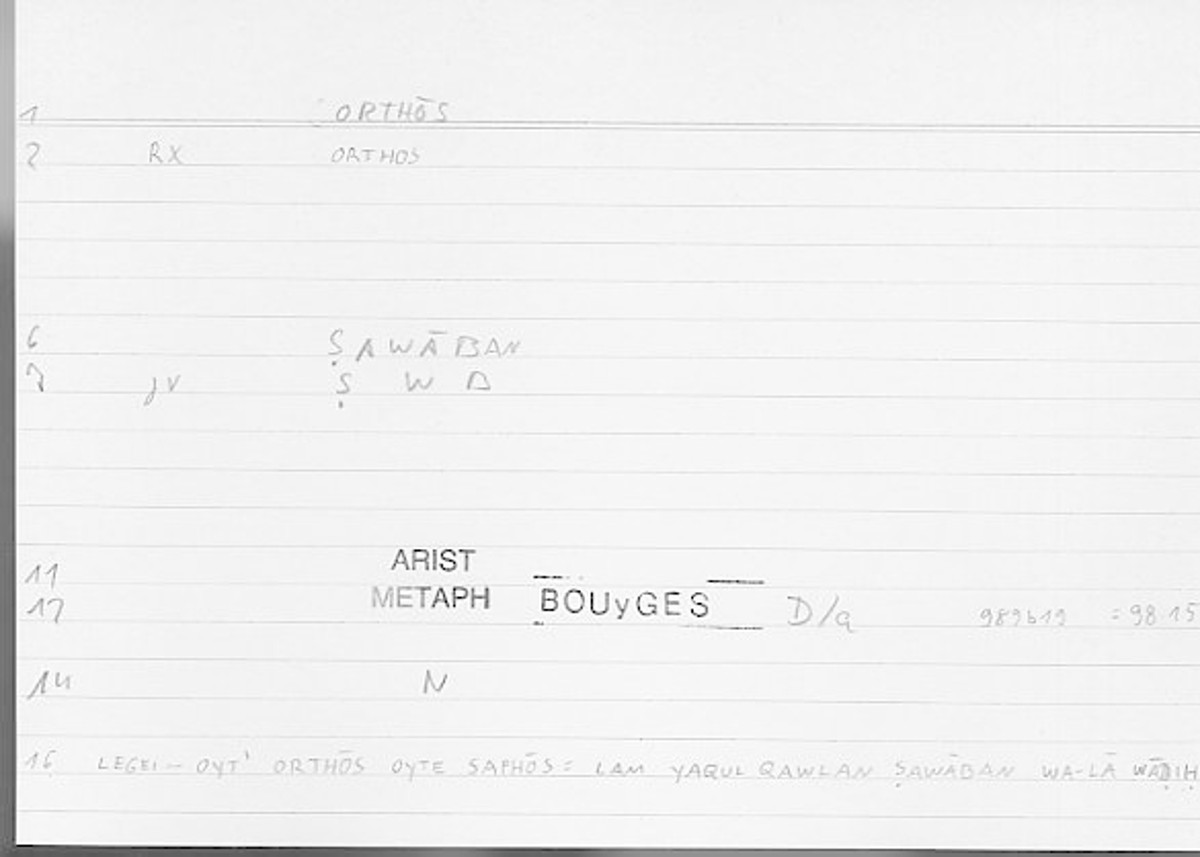 1 ORTHŌS
2 RX ORTHOS
6 ṢAWĀBAN
7 JV Ṣ W B
11 ARIST
12 METAPH BOUyGES D/a 989b19 = 98.15
14 N
16 LEGEI – OYT' ORTHŌS OYTE SAPHŌS = LAM YAQUL QAWLAN ṢAWĀBAN WA-LĀ WĀḌIḤ